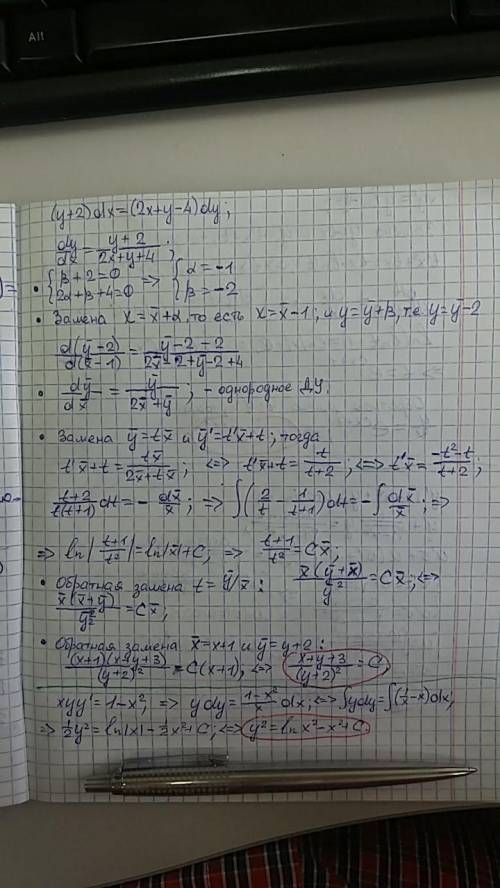 All
(y+2)dx=(2x+y-4)dy;
dy/dx = (y+2)/(2x+y+4);
• {β+2=0 => {α=-1
{2α+β+4=0 {β=-2
• Замена x=x̄+α, то есть x=x̄-1; и y=ȳ+β, т.е. y=ȳ-2
d(ȳ-2)/d(x̄-1) = (ȳ-2-2)/(2x̄-2+ȳ-2+4)
• dȳ/dx̄ = ȳ/(2x̄+ȳ); - однородное ДУ.
• Замена ȳ=tx̄ и ȳ'=t'x̄+t; тогда
t'x̄+t = tx̄/(2x̄+tx̄); <=> t'x̄+t = t/(t+2); <=> t'x̄ = (-t²-t)/(t+2);
(t+2)/(t(t+1)) dt = - dx̄/x̄; => ∫(2/t - 1/(t+1))dt = -∫dx̄/x̄; =>
=> ln|(t+1)/t²| = ln|x̄|+C; => (t+1)/t² = Cx̄;
• Обратная замена t=ȳ/x̄: x̄(ȳ+x̄)/ȳ² = Cx̄; <=>
x̄(x̄+ȳ)/ȳ² = Cx̄;
• Обратная замена x̄=x+1 и ȳ=y+2:
(x+1)(x+y+3)/(y+2)² = C(x+1); <=> (x+y+3)/(y+2)² = C.
xyy'=1-x²; => ydy = (1-x²)/x dx; <=> ∫ydy=∫(1/x-x)dx;
=> ½y²=ln|x|-½x²+C; <=> y²=lnx²-x²+C.